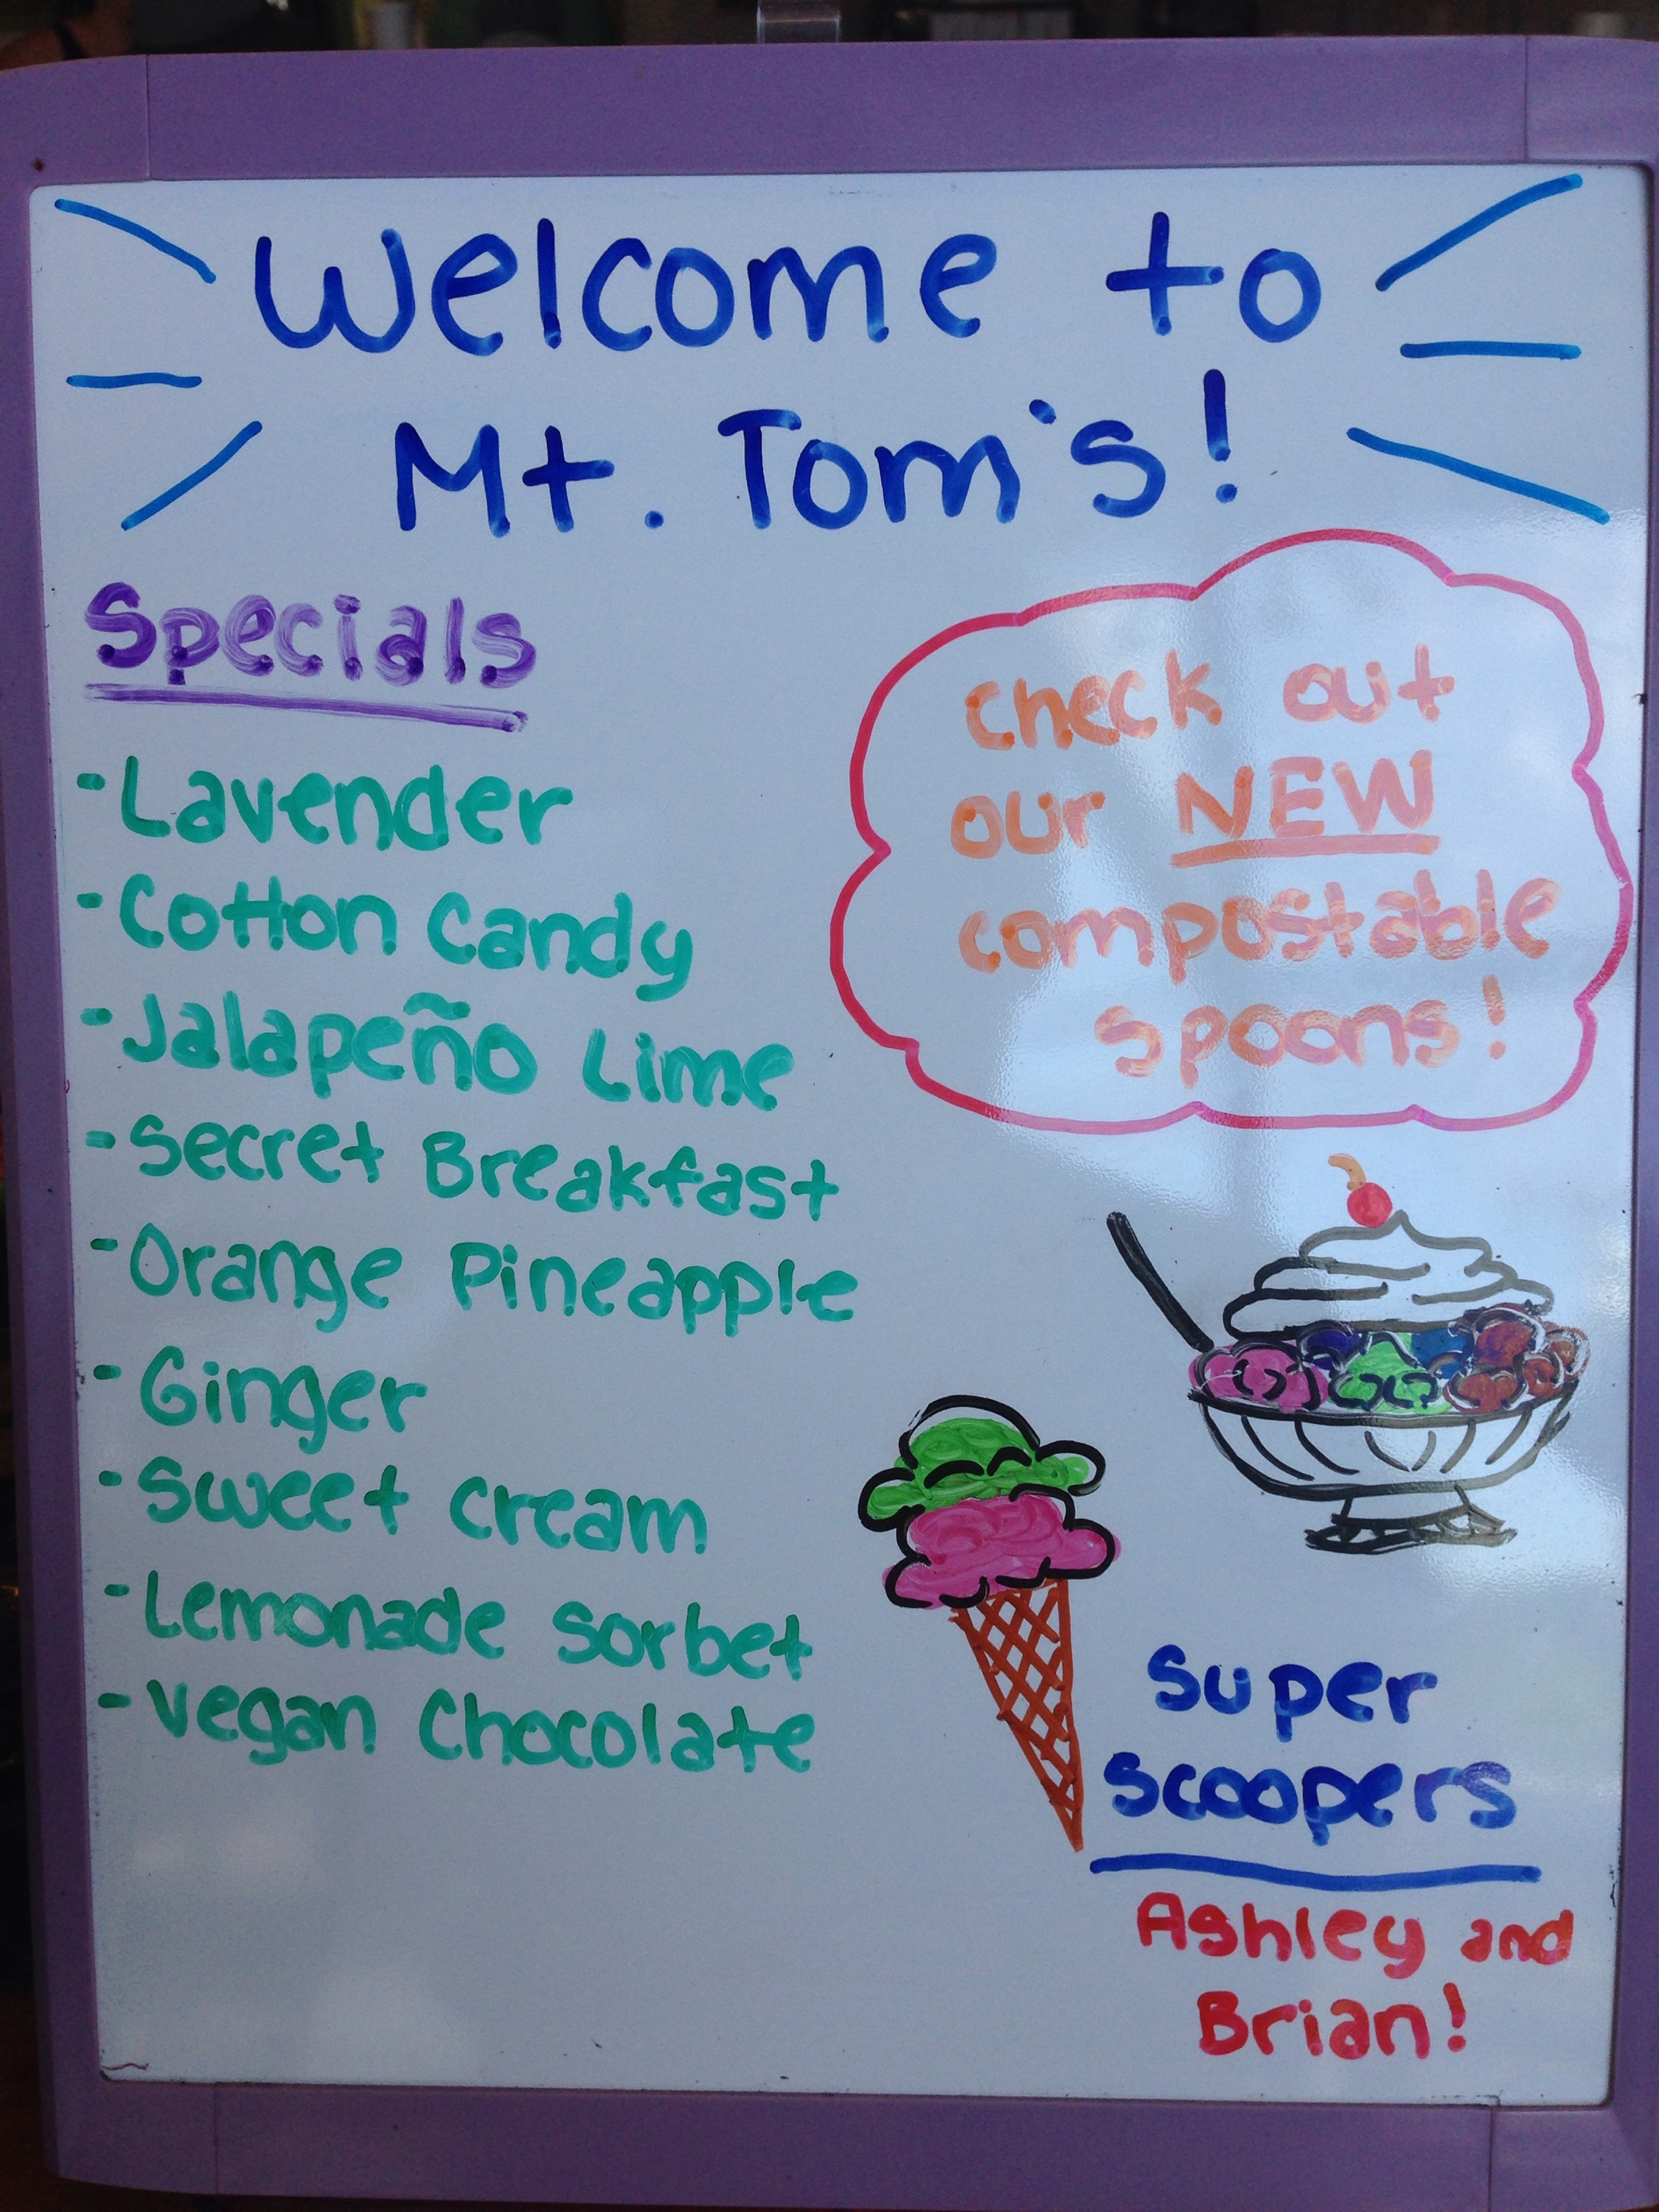 Welcome to
Mt. Tom's!
Specials
-Lavender
-Cotton Candy
-Jalapeño Lime
-Secret Breakfast
-Orange Pineapple
-Ginger
-Sweet Cream
-Lemonade Sorbet
-Vegan Chocolate
Check out
our NEW
compostable
spoons!
Super
Scoopers
Ashley and
Brian!